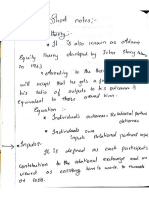 Short notes:-
Theory:-
• It is also known as Adams
Equity theory developed by John Stacey Adams
in 1963
• According to the theory
will accept that he gets a fair
his ratio of outputs to his outcomes is
equivalent to those around him.
Equation:-
• Individuals outcomes = Relational partner
outcomes
• Individuals own
inputs Relational partner
• Inputs:-
It is defined as each participants
contribution to the relational exchange and are
viewed as entitling him to rewards
or loss.